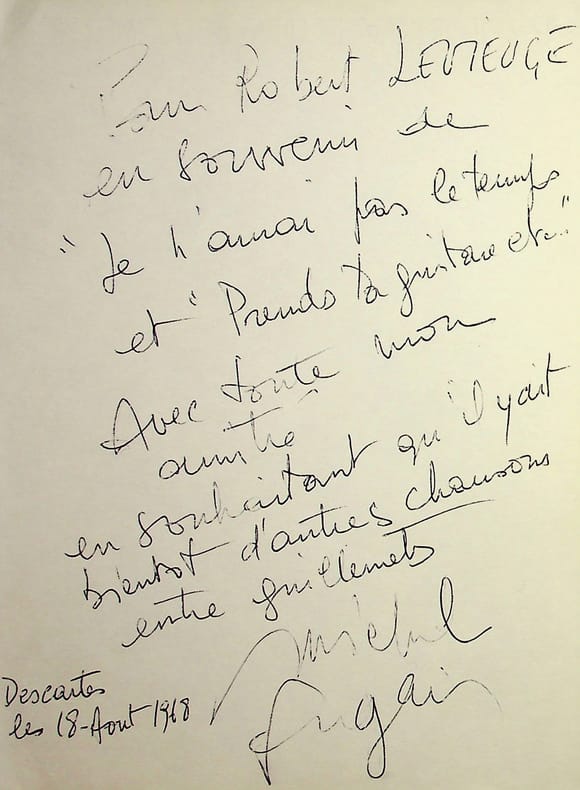 Pour Robert LEVIEUGE
en souvenir de
"Je n'aurai pas le temps
et "Prends ta guitare et..."
Avec toute mon
amitié
en souhaitant qu'il y ait
bientot d'autres chansons
entre guillemets
Michel
Fugain
Descartes
les 18-Aout 1968